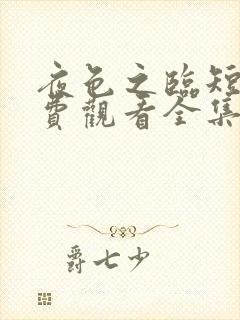 夜色之臨短
費觀看全集
爵七少